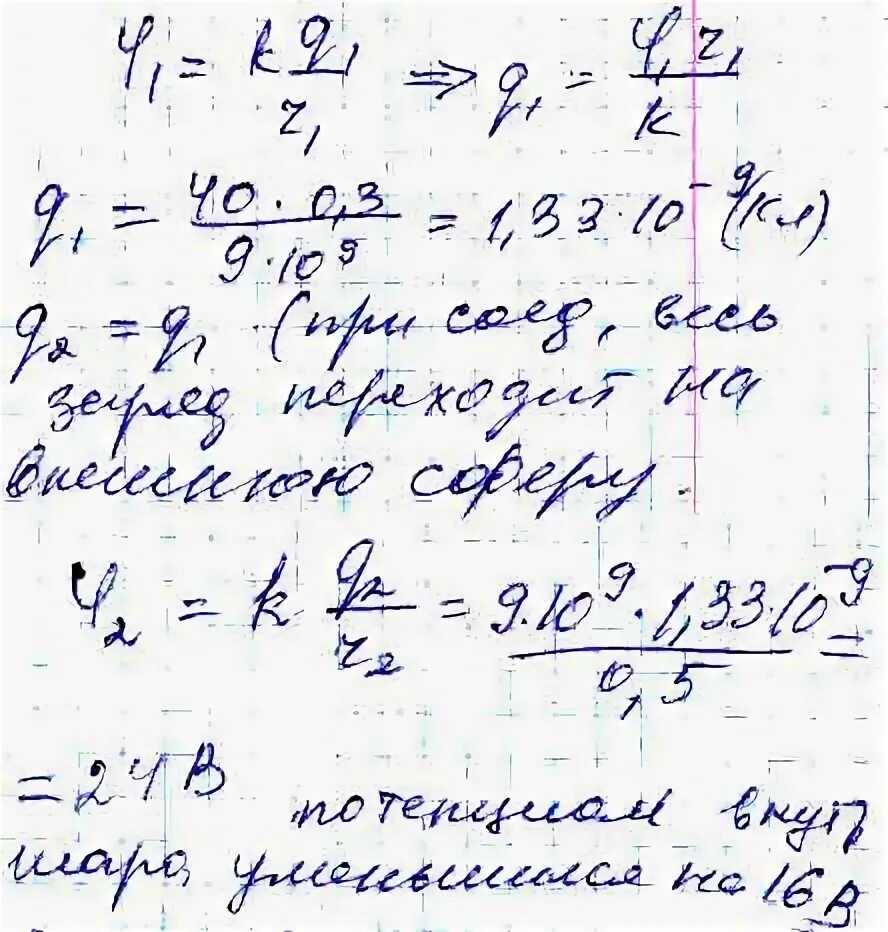 φ₁ = k q₁/r₁ ⇒ q₁ = φ₁r₁/k
q₁ = 40 · 0,3 / 9·10⁹ = 1,33·10⁻⁹ (Кл)
q₂ = q₁ (при соед, весь
заряд переходит на
внешнюю сферу.
φ₂ = k q₂/r₂ = 9·10⁹ · 1,33·10⁻⁹ / 0,5 =
= 24 В потенциал внутр
шара уменьшился на 16 В